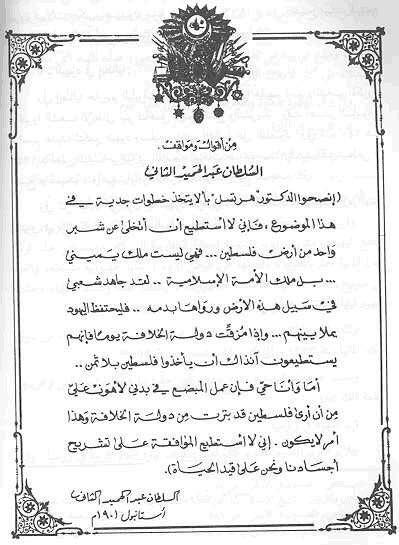 مِنْ أقوالٍ ومواقف.
السلطان عبد الحميد الثاني
(إنصحوا الدكتور هرتسل بألا يتخذ خطوات جدية في
هذا الموضوع، فإني لا استطيع أن أتخلى عن شبر
واحد من أرض فلسطين ... فهي ليست ملك يميني
... بل ملك الأمة الإسلامية .. لقد جاهد شعبي
في سبيل هذه الأرض ورواها بدمه .. فليحتفظ اليهود
بملايينهم ... وإذا مُزقت دولة الخلافة يومًا فإنهم
يستطيعون آنذاك أن يأخذوا فلسطين بلا ثمن ..
أمّا وأنا حي فإن عمل المبضع في بدني لأهون عليّ
مِن أن أرى فلسطين قد بترت مِن دولة الخلافة وهذا
أمر لا يكون . إني لا استطيع الموافقة على تشريح
أجسادنا ونحن على قيد الحياة).
السلطان عبد الحميد الثاني
استانبول ١٩٠١م